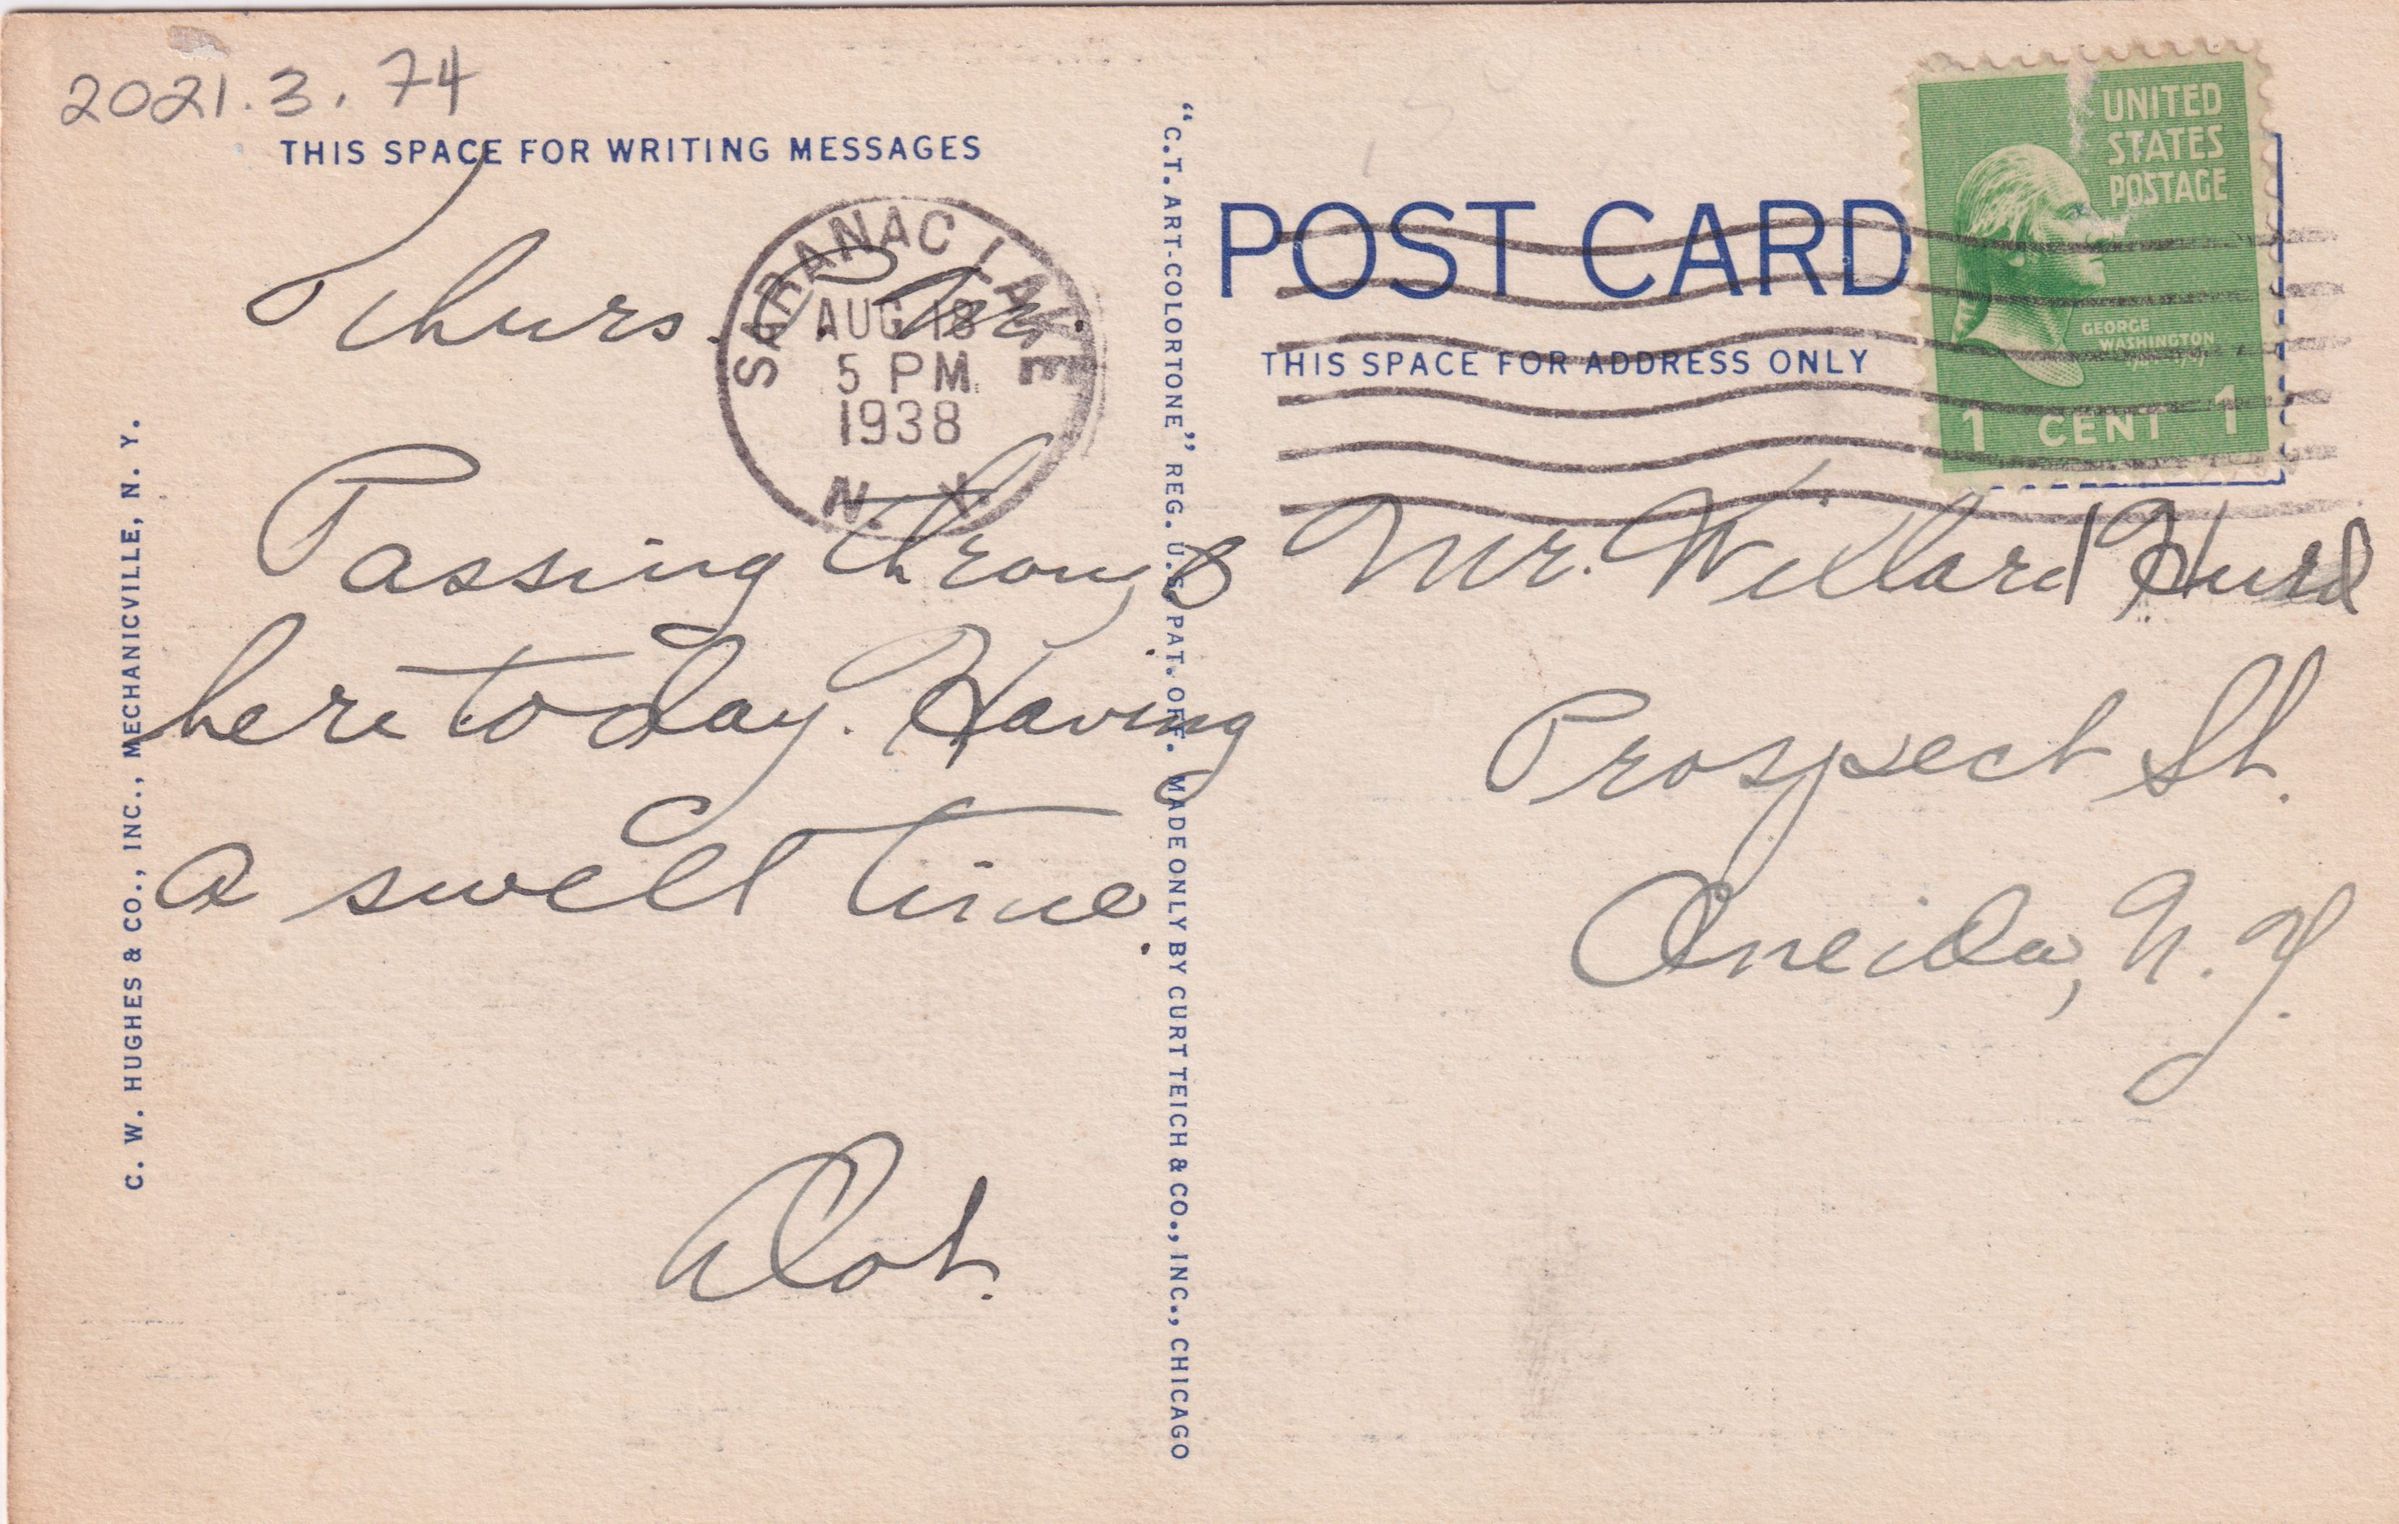 2021.3.74
THIS SPACE FOR WRITING MESSAGES
Thurs. P.M.
Passing through
here today. Having
a swell time.
Dot.
C. W. HUGHES & CO., INC., MECHANICVILLE, N. Y.
SARANAC LAKE
AUG 18
5 PM
1938
N. Y.
"C.T. ART-COLORTONE" REG. U.S. PAT. OFF. MADE ONLY BY CURT TEICH & CO., INC., CHICAGO
POST CARD
THIS SPACE FOR ADDRESS ONLY
UNITED
STATES
POSTAGE
GEORGE
WASHINGTON
1 CENT 1
Mr. Willard Hurd
Prospect St.
Oneida, N.Y.